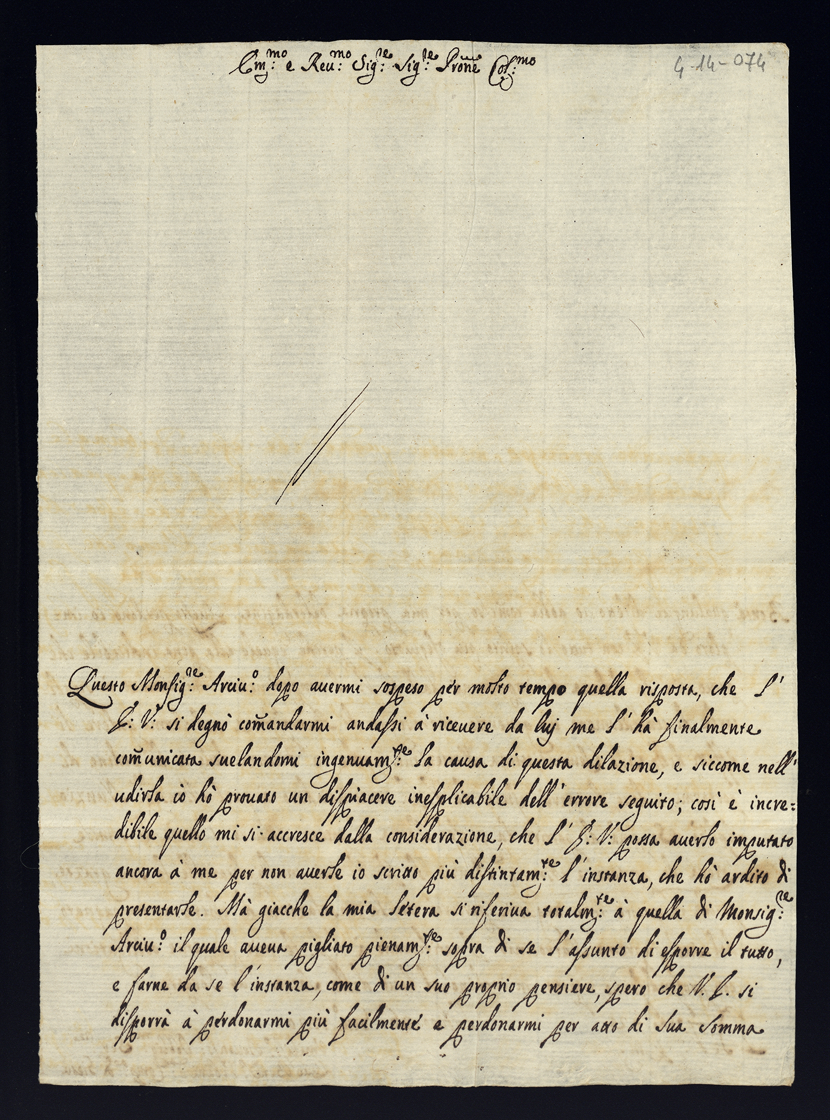 Em.mo e Reu.mo Sig.re Sig.re Prone Col.mo
4-14-074
Questo Monsig.re Arciu.o dopo auermi sospeso per molto tempo quella risposta, che l'
E: V: si degnò comandarmi andassi à riceuere da luj me l'hà finalmente
comunicata suelandomi ingenuam.te la causa di questa dilazione, e siccome nell'
udirla iò hò prouato un dispiacere inesplicabile dell'errore seguito; così è incre=
dibile quello mi si accresce dalla considerazione, che l'E: V: possa auerlo imputato
ancora à me per non auerle io scritto più distintam.te l'instanza, che hò ardito di
presentarle. Mà giacche la mia lettera si riferiua totalm.te à quella di Monsig.re
Arciu.o il quale aueua pigliato pienam.te sopra di se l'assunto di esporre il tutto,
e farne da se l'instanza, come di un suo proprio pensiere, spero che V. E. si
disporrà à perdonarmi più facilmente e perdonarmi per atto di sua somma